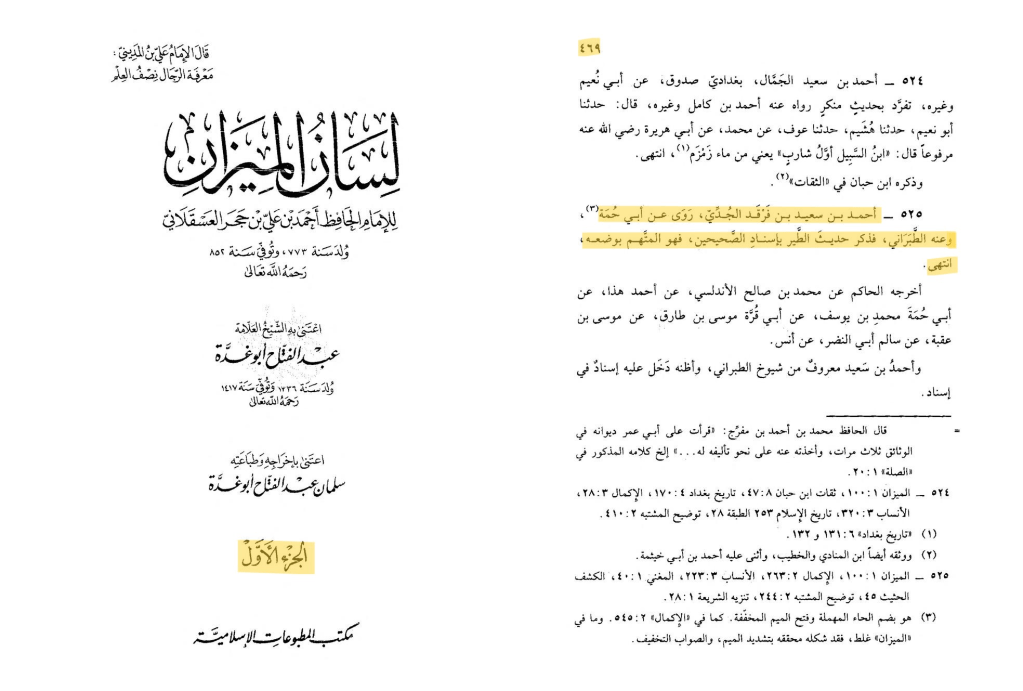 قَالَ الإِمَامُ عَلِيّ بْنُ المَدِينِيّ :
مَعْرِفَة الرِّجَال نِصْفُ العِلْم
لِسَانُ الْمِيزَانِ
لِلإِمَامِ الحَافِظ أَحْمَد بْن عَلِيّ بْن حَجَر العَسْقَلَانِيّ
وُلدَ سَنَة ٧٧٣، وتُوفّي سَنَة ٨٥٢
رَحمَهُ اللَّه تَعَالىٰ
اعْتَنىٰ بِهِ الشَّيْخُ العَلّامَة
عَبْد الفَتَّاح أَبُو غُدَّة
وُلدَ سَنَة ١٣٣٦ وَتُوفّي سَنَة ١٤١٧
رَحمَهُ اللَّه تَعَالىٰ
اعتَنىٰ بإخرَاجِهِ وَطِبَاعَتِهِ
سَلمَان عَبْد الفَتَّاح أَبُو غُدَّة
الجُزْءُ الْأَوَّلُ
مَكتب المَطبُوعَاتِ الإِسْلَاميَّة
٤٦٩
٥٢٤ ــ أحمد بن سعيد الجَمَّال، بغداديّ صدوق، عن أبي نُعيم
وغيره، تفرَّد بحديثٍ منكرٍ رواه عنه أحمد بن كامل وغيره، قال: حدثنا
أبو نعيم، حدثنا هُشَيم، حدثنا عوف، عن محمد، عن أبي هريرة رضي الله عنه
مرفوعاً قال: «ابنُ السَّبِيل أوَّلُ شاربٍ» يعني من ماء زَمْزَم(١)، انتهى.
وذكره ابن حبان في «الثقات»(٢).
٥٢٥ ــ أحمـد بـن سعيـد بـن فَرْقَـد الجُـدِّيّ، رَوَى عـن أبـي حُمَة(٣)،
وعنه الطَّبَراني، فذكر حديثَ الطَّير بإسنادِ الصَّحيحين، فهو المتَّهم بوضعه،
انتهى.
أخرجه الحاكم عن محمد بن صالح الأندلسي، عن أحمد هذا، عن
أبي حُمَةَ محمدِ بن يوسف، عن أبي قُرَّة موسى بن طارق، عن موسى بن
عقبة، عن سالم أبي النضر، عن أنس.
وأحمدُ بن سَعيد معروفٌ من شيوخ الطبراني، وأظنه دَخَل عليه إسنادٌ في
إسناد.
= قال الحافظ محمد بن أحمد بن مفرِّج: «قرأت على أبي عمر ديوانه في
الوثائق ثلاث مرات، وأخذته عنه على نحو تأليفه له...» إلخ كلامه المذكور في
«الصلة» ١: ٢٠.
٥٢٤ ــ الميزان ١: ١٠٠، ثقات ابن حبان ٨: ٤٧، تاريخ بغداد ٤: ١٧٠، الإكمال ٣: ٢٨،
الأنساب ٣: ٣٢٠، تاريخ الإسلام ٢٥٣ الطبقة ٢٨، توضيح المشتبه ٢: ٤١٠.
(١) «تاريخ بغداد» ٦: ١٣١ و ١٣٢.
(٢) ووثقه أيضاً ابن المنادي والخطيب، وأثنى عليه أحمد بن أبي خيثمة.
٥٢٥ ــ الميزان ١: ١٠٠، الإكمال ٢: ٢٦٣، الأنساب ٣: ٢٢٣، المغني ١: ٤٠، الكشف
الحثيث ٤٥، توضيح المشتبه ٢: ٢٤٤، تنزيه الشريعة ١: ٢٨.
(٣) هو بضم الحاء المهملة وفتح الميم المخفَّفة. كما في «الإكمال» ٢: ٥٤٥. وما في
«الميزان» غلط، فقد شكله محققه بتشديد الميم، والصواب التخفيف.